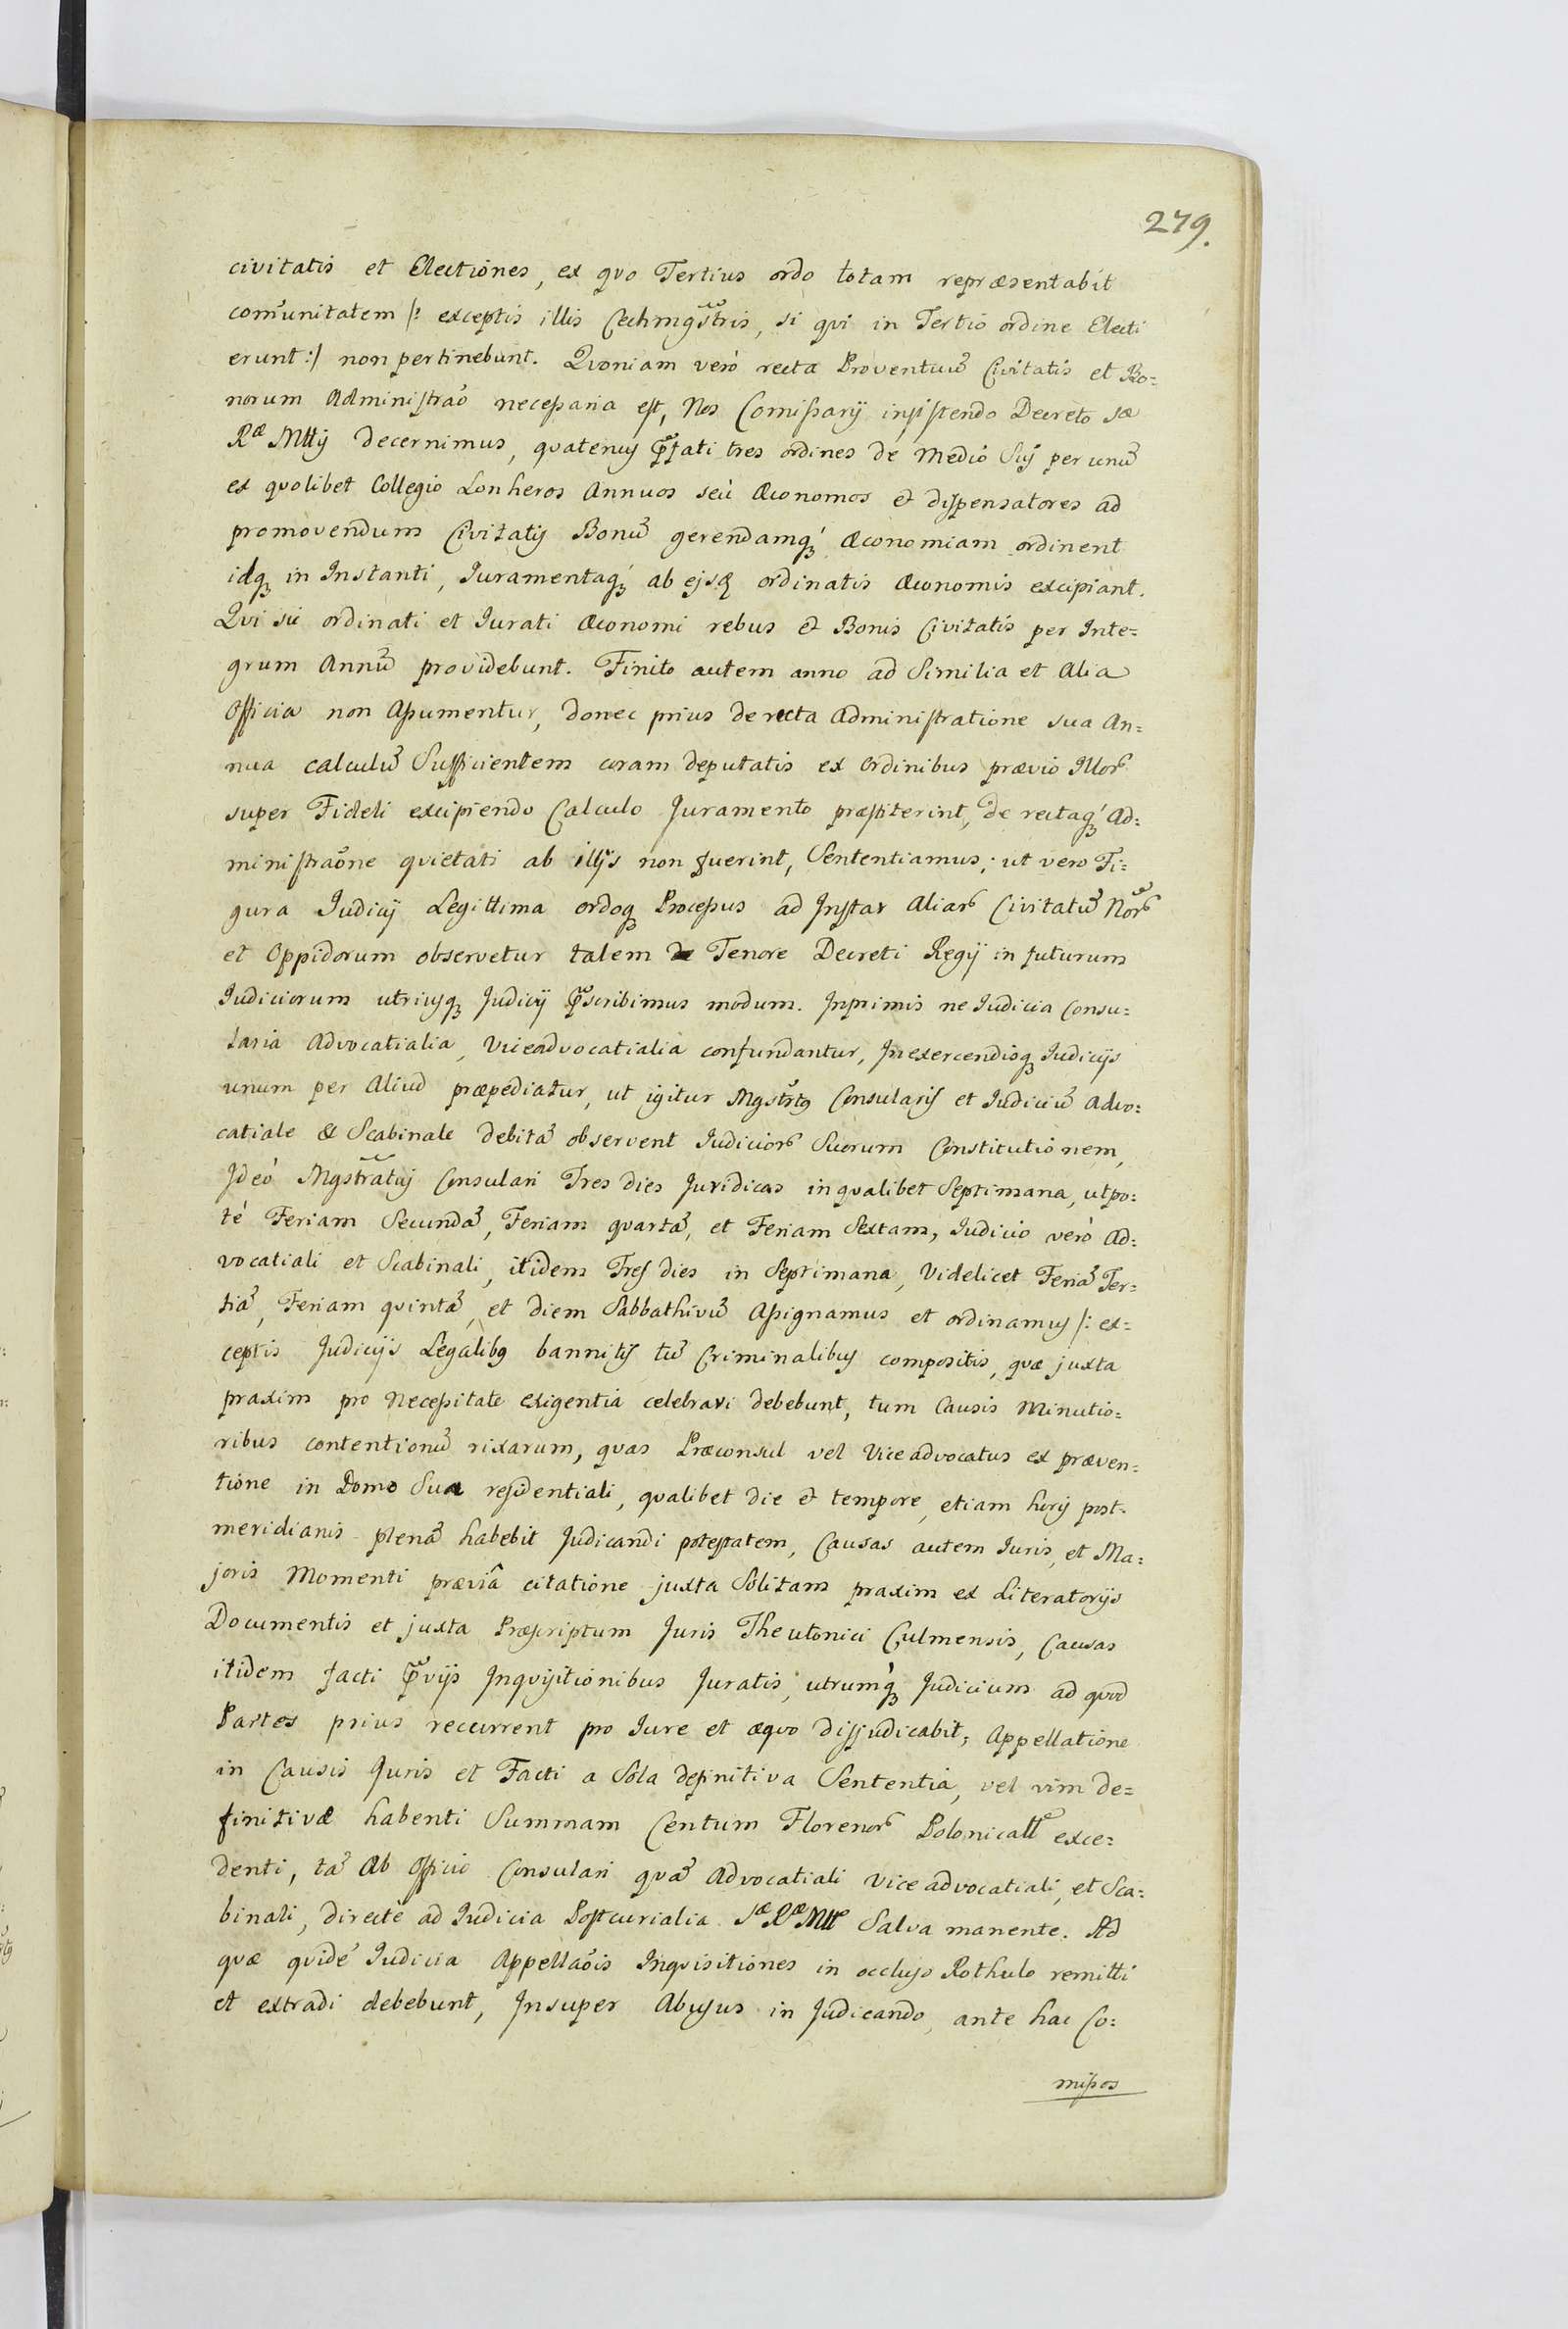 279.
civitatis et Electiones, ex quo Tertius ordo totam repræsentabit
com̃unitatem /: exceptis illis Cechmgr̃tris, si qui in Tertio ordine Electi
erunt :/ non pertinebunt. Quoniam verò recta Proventuũ Civitatis et Bo=
norum Administraõ necessaria est, Nos Comissarij insistendo Decreto Sæ
Ræ Mttis decernimus, quatenus p̃fati tres ordines de Medio Sui per unũ
ex quolibet Collegio Lonheros Annuos seù Œconomos et dispensatores ad
promovendum Civitatis Bonũ gerendamq́ Œconomiam ordinent
idq in Instanti, Iuramentaq́ ab ejsd ordinatis Œconomis excipiant.
Qui sic ordinati et Iurati Œconomi rebus et Bonis Civitatis per Inte=
grum Annũ providebunt. Finito autem anno ad Similia et Alia
Officia non Assumentur, donec prius de recta Administratione sua An=
nua calculũ Sufficientem coram deputatis ex Ordinibus prævio Illor
super Fideli excipiendo Calculo Juramento præstiterint, de rectaq́ Ad=
ministraõne quietati ab illis non fuerint, Sententiamus; ut vero Fi=
gura Judicij Legittima ordoq Processus ad Instar Aliar Civitatũ Nõr
et Oppidorum observetur talem de Tenore Decreti Regij in futurum
Iudiciorum utriusq Judicij p̃scribimus modum. Inprimis ne Iudicia Consu=
laria Advocatialia, Viceadvocatialia confundantur, In exercendisq Iudicijs
unum per Aliud præpediatur, ut igitur Mgstr̃tq Consularis et Iudiciũ Advo=
catiale & Scabinale debitã observent Iudicior Suorum Constitutionem,
Ideò Mgstr̃atuj Consulari Tres dies Juridicas in qualibet Septimana, utpo=
té Feriam Secundã, Feriam quartã, et Feriam Sextam, Iudicio verò Ad=
vocatiali et Scabinali, itidem Tres dies in Septimana, Videlicet Feriã Ter=
tiã, Feriam quintã, et diem Sabbathivũ Assignamus et ordinamus /: ex=
ceptis Judicijs Legalibq bannitis tũ Criminalibus compositis, quæ juxta
praxim pro Necessitate exigentia celebrari debebunt, tum Causis Minutio=
ribus contentionũ rixarum, quas Præconsul vel Viceadvocatus ex præven=
tione in Domo Sua residentiali, qualibet die et tempore, etiam horis post=
meridianis plenã habebit Judicandi potestatem, Causas autem Iuris, et Ma=
joris Momenti præviâ citatione juxta Solitam praxim ex Literatorijs
Documentis et juxta Præscriptum Juris Theutonici Culmensis, Causas
itidem facti p̃vijs Inquisitionibus Juratis, utrumq́ Judicium ad quod
Partes prius recurrent pro Iure et æquo disjudicabit; Appellatione
in Causis Juris et Facti a Sola definitiva Sententia, vel vim de=
finitivæ habenti Summam Centum Florenor Polonicall exce=
denti, tã ab Officio Consulari quã Advocatiali viceadvocatiali, et Sca=
binali, directè ad Iudicia Postcurialia Sæ Ræ Mtts Salva manente. Ad
quæ quidẽ Iudicia Appellaõis Inquisitiones in occluso Rothulo remitti
et extradi debebunt, Insuper Abusus in Judicando, ante hac Co=
missos